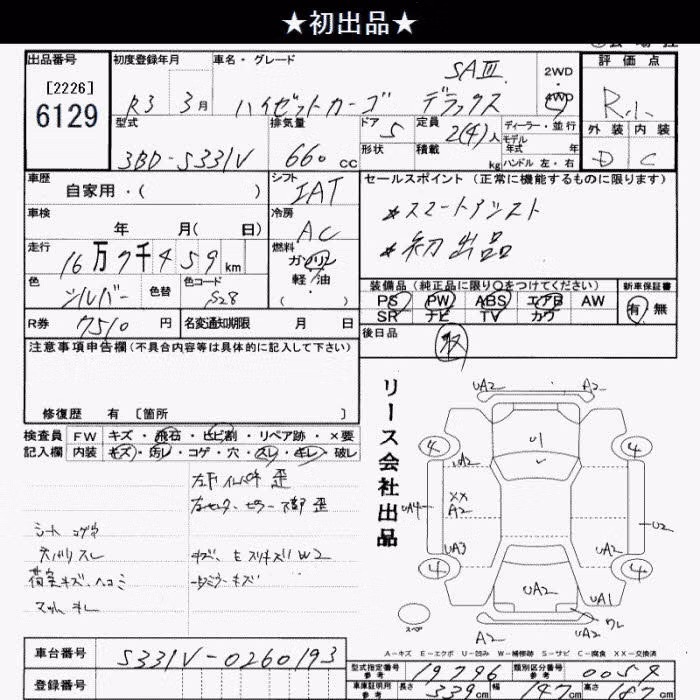 ★初出品★
出品番号
[2226]
6129
初度登録年月
R3 3月
車名・グレード
ハイゼットカーゴ デラックス SAⅢ
2WD
4WD
評価点
R
外装 内装
D C
型式
3BD-S331V
排気量
660cc
ドア 5
形状
定員 2(4)人
積載 kg
ディーラー・並行
モデル年式 年
ハンドル 左・右
車歴
自家用・( )
シフト
IAT
セールスポイント (正常に機能するものに限ります)
*スマートアシスト
*初出品
車検
年 月( 日)
冷房
AC
走行
16万7千459km
燃料
ガソリン
軽・油
・( )
色
シルバー
色替
色コード
S28
装備品 (純正品に限り○をつけてください)
PS PW ABS エアB AW
SR ナビ TV カワ
新車保証書
有 無
R券
7510円
名変通知期限 月 日
後日品
取
注意事項申告欄(不具合内容等は具体的に記入して下さい)
修復歴 有 [箇所 ]
検査員記入欄
FW キズ・飛石・ヒビ割・リペア跡・×要
内装 キズ・汚レ・コゲ・穴・スレ・キレ・破レ
シート コゲ穴
荷室キズ、ヘコミ
リース会社出品
UA2 A2
4 4
U1
A2
XX
A2
UA4
U2
UA3 UA2
4 4
UA2
UA1
ワレ
A2 UA2
スペア
A-キズ E-エクボ U-凹み W-補修跡 S-サビ C-腐食 XX-交換済
車台番号
S331V-0260193
登録番号
型式指定番号 参考
19796
類別区分番号 参考
0059
車庫証明用 参考
長さ 339cm 幅 147cm 高さ 187cm